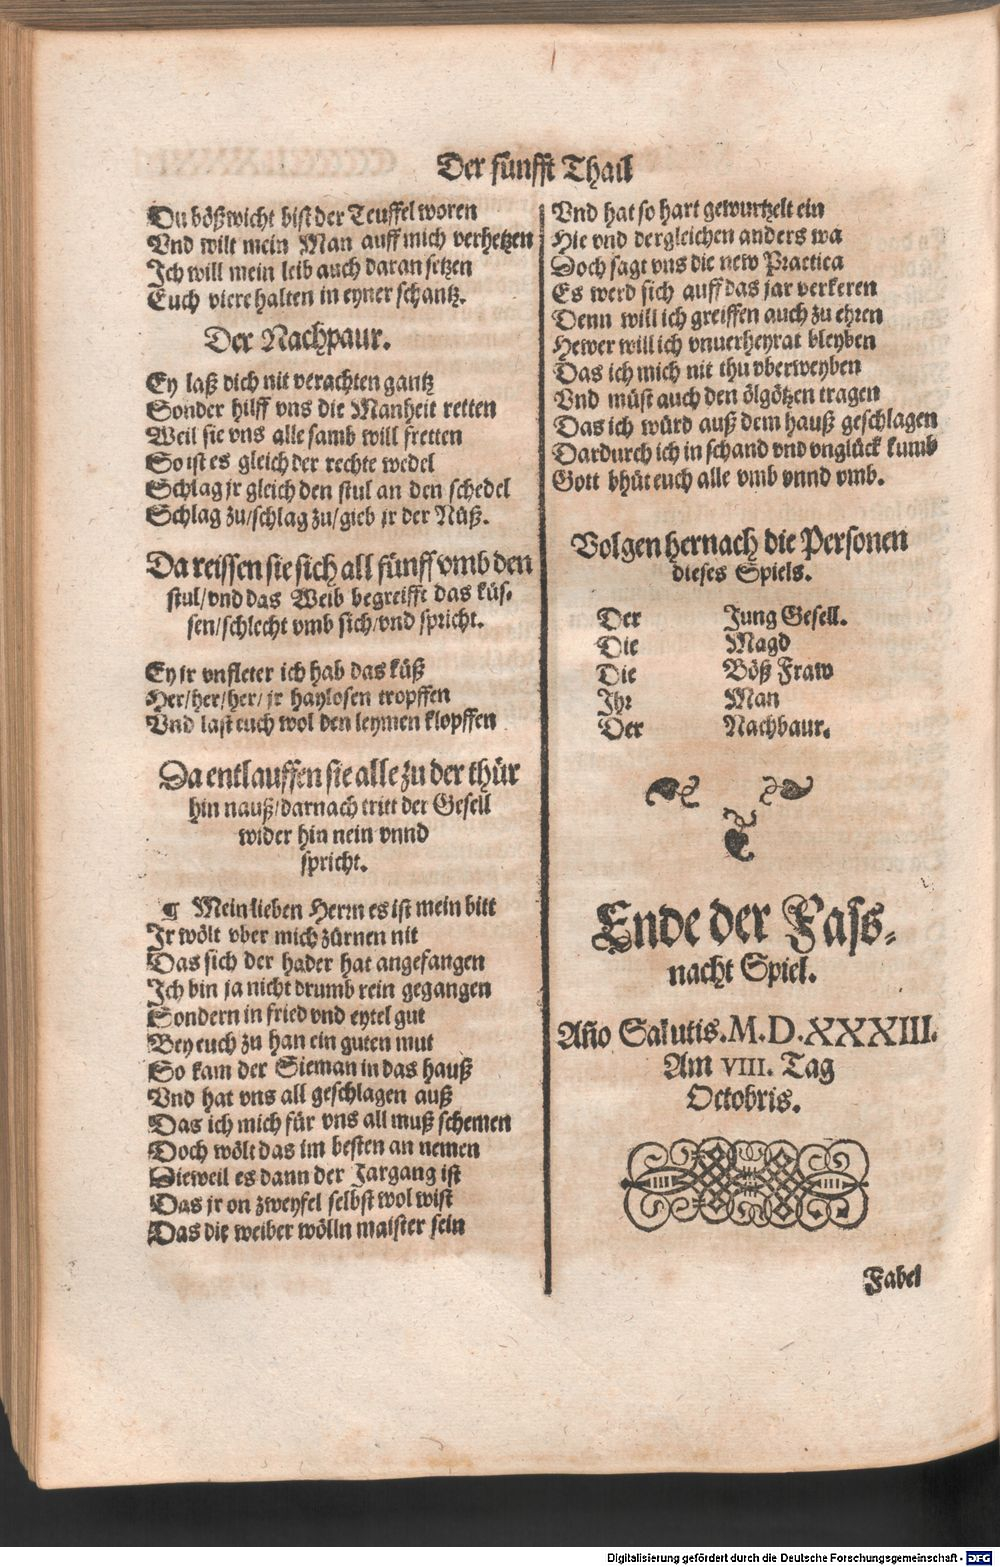 Der fünfft Thail
Du bößwicht bist der Teuffel woren
Vnd wilt mein Man auff mich verhetzen
Ich will mein leib auch daran setzen
Euch viere halten in eyner schantz.
Der Nachpaur.
Ey laß dich nit verachten gantz
Sonder hilff vns die Manheit retten
Weil sie vns alle samb will fretten
So ist es gleich der rechte wedel
Schlag jr gleich den stul an den schedel
Schlag zu/schlag zu/gieb jr der Nüß.
Da reissen sie sich all fünff vmb den
stul/vnd das Weib begreifft das küs-
sen/schlecht vmb sich/vnd spricht.
Ey jr vnfleter ich hab das küß
Her/her/her/ jr haylosen tropffen
Vnd last euch wol den leymen klopffen
Da entlauffen sie alle zu der thür
hin nauß/darnach tritt der Gesell
wider hin nein vnnd
spricht.
¶ Mein lieben Herrn es ist mein bitt
Ir wölt vber mich zürnen nit
Das sich der hader hat angefangen
Ich bin ja nicht drumb rein gegangen
Sondern in fried vnd eytel gut
Bey euch zu han ein guten mut
So kam der Sieman in das hauß
Vnd hat vns all geschlagen auß
Das ich mich für vns all muß schemen
Doch wölt das im besten an nemen
Dieweil es dann der Jargang ist
Das jr on zweyfel selbst wol wist
Das die weiber wölln maister sein
Vnd hat so hart gewurtzelt ein
Hie vnd dergleichen anders wa
Doch sagt vns die new Practica
Es werd sich auff das jar verkeren
Denn will ich greiffen auch zu ehren
Hewer will ich vnuerheyrat bleyben
Das ich mich nit thu vberweyben
Vnd müst auch den ölgötzen tragen
Das ich würd auß dem hauß geschlagen
Dardurch ich in schand vnd vnglück kumb
Gott bhüt euch alle vmb vnnd vmb.
Volgen hernach die Personen
dieses Spiels.
Der Jung Gesell.
Die Magd
Die Böß Fraw
Ihr Man
Der Nachbaur.
Ende der Fass-
nacht Spiel.
Año Salutis.M.D.XXXIII.
Am VIII. Tag
Octobris.
Fabel
Digitalisierung gefördert durch die Deutsche Forschungsgemeinschaft - DFG